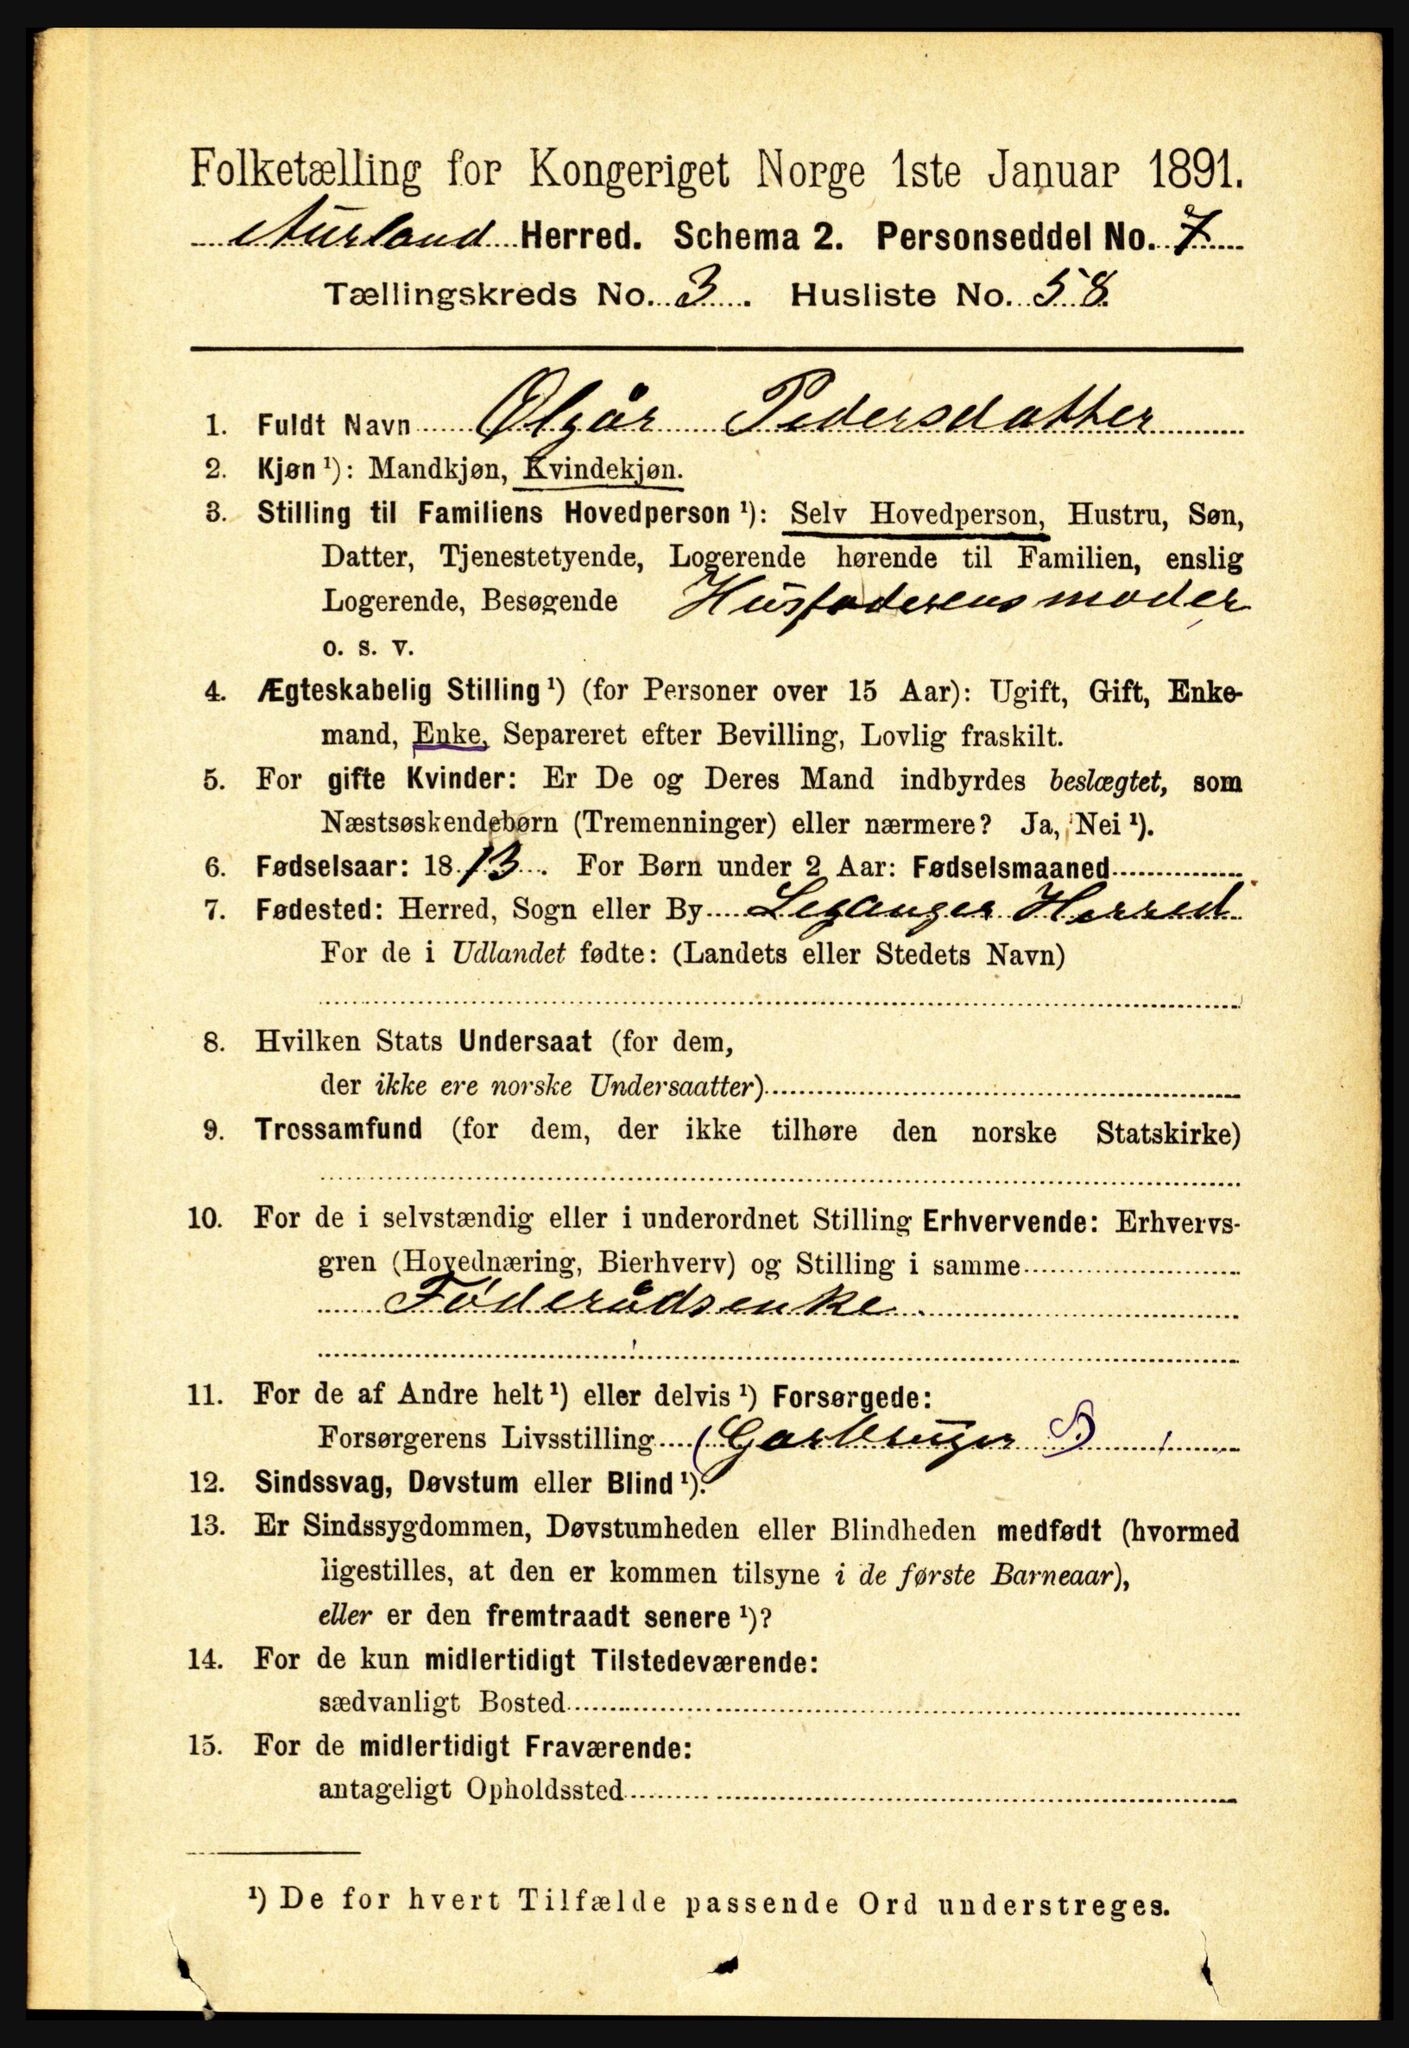 Folketælling for Kongeriget Norge 1ste Januar 1891.
Aurland Herred. Schema 2. Personseddel No. 7
Tællingskreds No. 3. Husliste No. 58
1. Fuldt Navn Olgår Pedersdatter
2. Kjøn ¹): Mandkjøn, Kvindekjøn.
3. Stilling til Familiens Hovedperson ¹): Selv Hovedperson, Hustru, Søn,
Datter, Tjenestetyende, Logerende hørende til Familien, enslig
Logerende, Besøgende Husfaderens moder
o. s. v.
4. Ægteskabelig Stilling ¹) (for Personer over 15 Aar): Ugift, Gift, Enke-
mand, Enke, Separeret efter Bevilling, Lovlig fraskilt.
5. For gifte Kvinder: Er De og Deres Mand indbyrdes beslægtet, som
Næstsøskendebørn (Tremenninger) eller nærmere? Ja, Nei ¹).
6. Fødselsaar: 1813. For Børn under 2 Aar: Fødselsmaaned
7. Fødested: Herred, Sogn eller By Leganger Herred
For de i Udlandet fødte: (Landets eller Stedets Navn)
8. Hvilken Stats Undersaat (for dem,
der ikke ere norske Undersaatter)
9. Trossamfund (for dem, der ikke tilhøre den norske Statskirke)
10. For de i selvstændig eller i underordnet Stilling Erhvervende: Erhvervs-
gren (Hovednæring, Bierhverv) og Stilling i samme
Føderådsenke
11. For de af Andre helt ¹) eller delvis ¹) Forsørgede:
Forsørgerens Livsstilling (Garbruger S)
12. Sindssvag, Døvstum eller Blind ¹).
13. Er Sindssygdommen, Døvstumheden eller Blindheden medfødt (hvormed
ligestilles, at den er kommen tilsyne i de første Barneaar),
eller er den fremtraadt senere ¹)?
14. For de kun midlertidigt Tilstedeværende:
sædvanligt Bosted
15. For de midlertidigt Fraværende:
antageligt Opholdssted
¹) De for hvert Tilfælde passende Ord understreges.